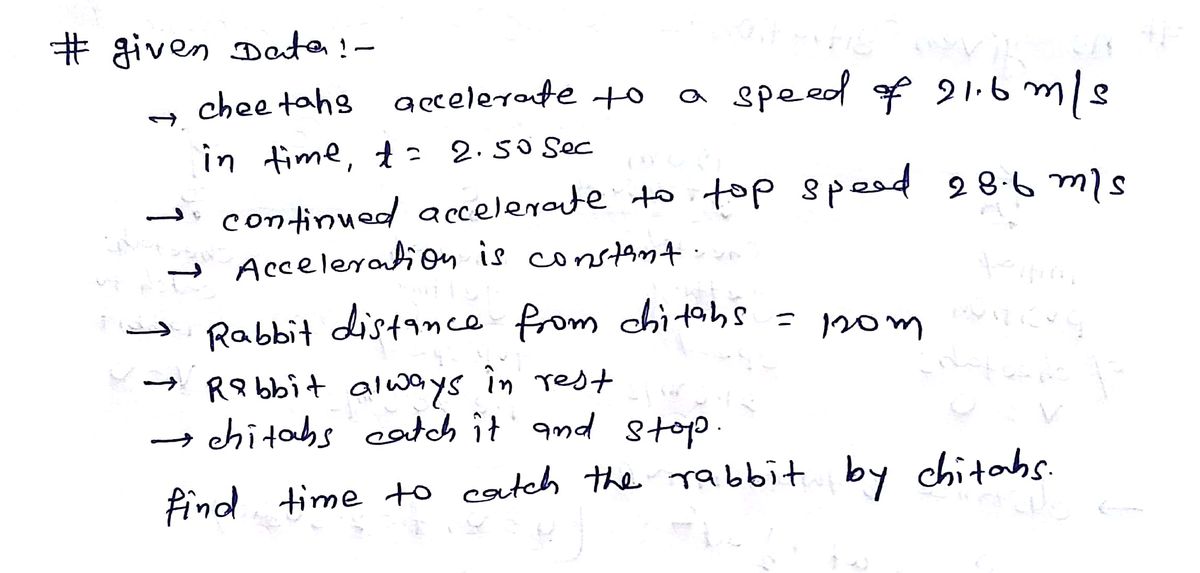 # given Data :-
→ cheetahs accelerate to a speed of 21.6 m/s
in time, t = 2.50 Sec
→ continued accelerate to top speed 28.6 m/s
→ Acceleration is constant.
→ Rabbit distance from chitahs = 120m
→ Rabbit always in rest
→ chitahs catch it and stop.
find time to catch the rabbit by chitahs.